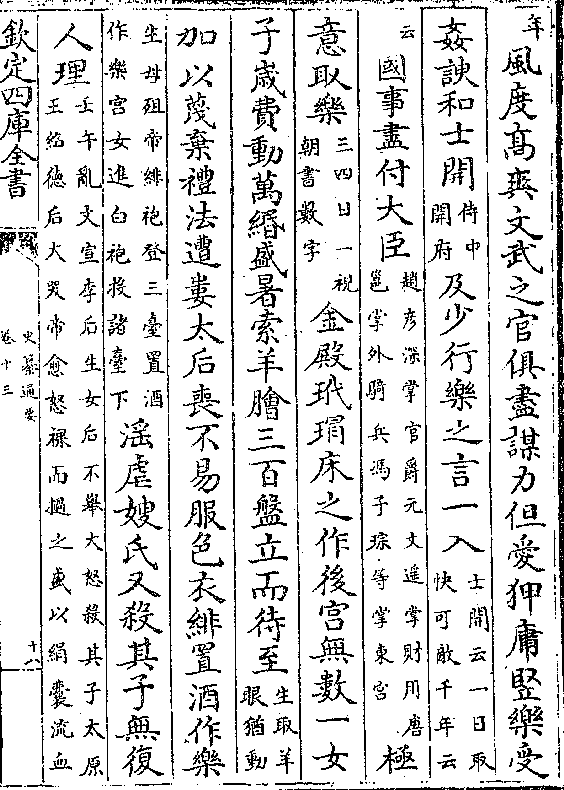 年風度高爽文武之官俱盡謀力但愛狎庸豎樂受
姦諛和士開侍中開府及少行樂之言一入士開云一日取快可敵千年云
云國事盡付大臣趙彥深掌官爵元文遥掌財用唐邕掌外騎兵馮子琮等掌東宮極
意取樂三四日一視朝書數字金殿玳瑁床之作後宮無數一女
子歲費動萬緡盛暑索羊膾三百盤立而待至生取羊眼猶動
加以蔑棄禮法遭婁太后喪不易服色衣緋置酒作樂
生母殂帝緋袍登三臺置酒作樂宮女進白袍投諸臺下淫虐嫂氏又殺其子無復
人理壬午亂文宣李后生女后不舉大怒殺其子太原王紹德后大哭帝愈怒裸而撾之盛以絹囊流血
欽定四庫全書
史纂通要
卷十三
十八